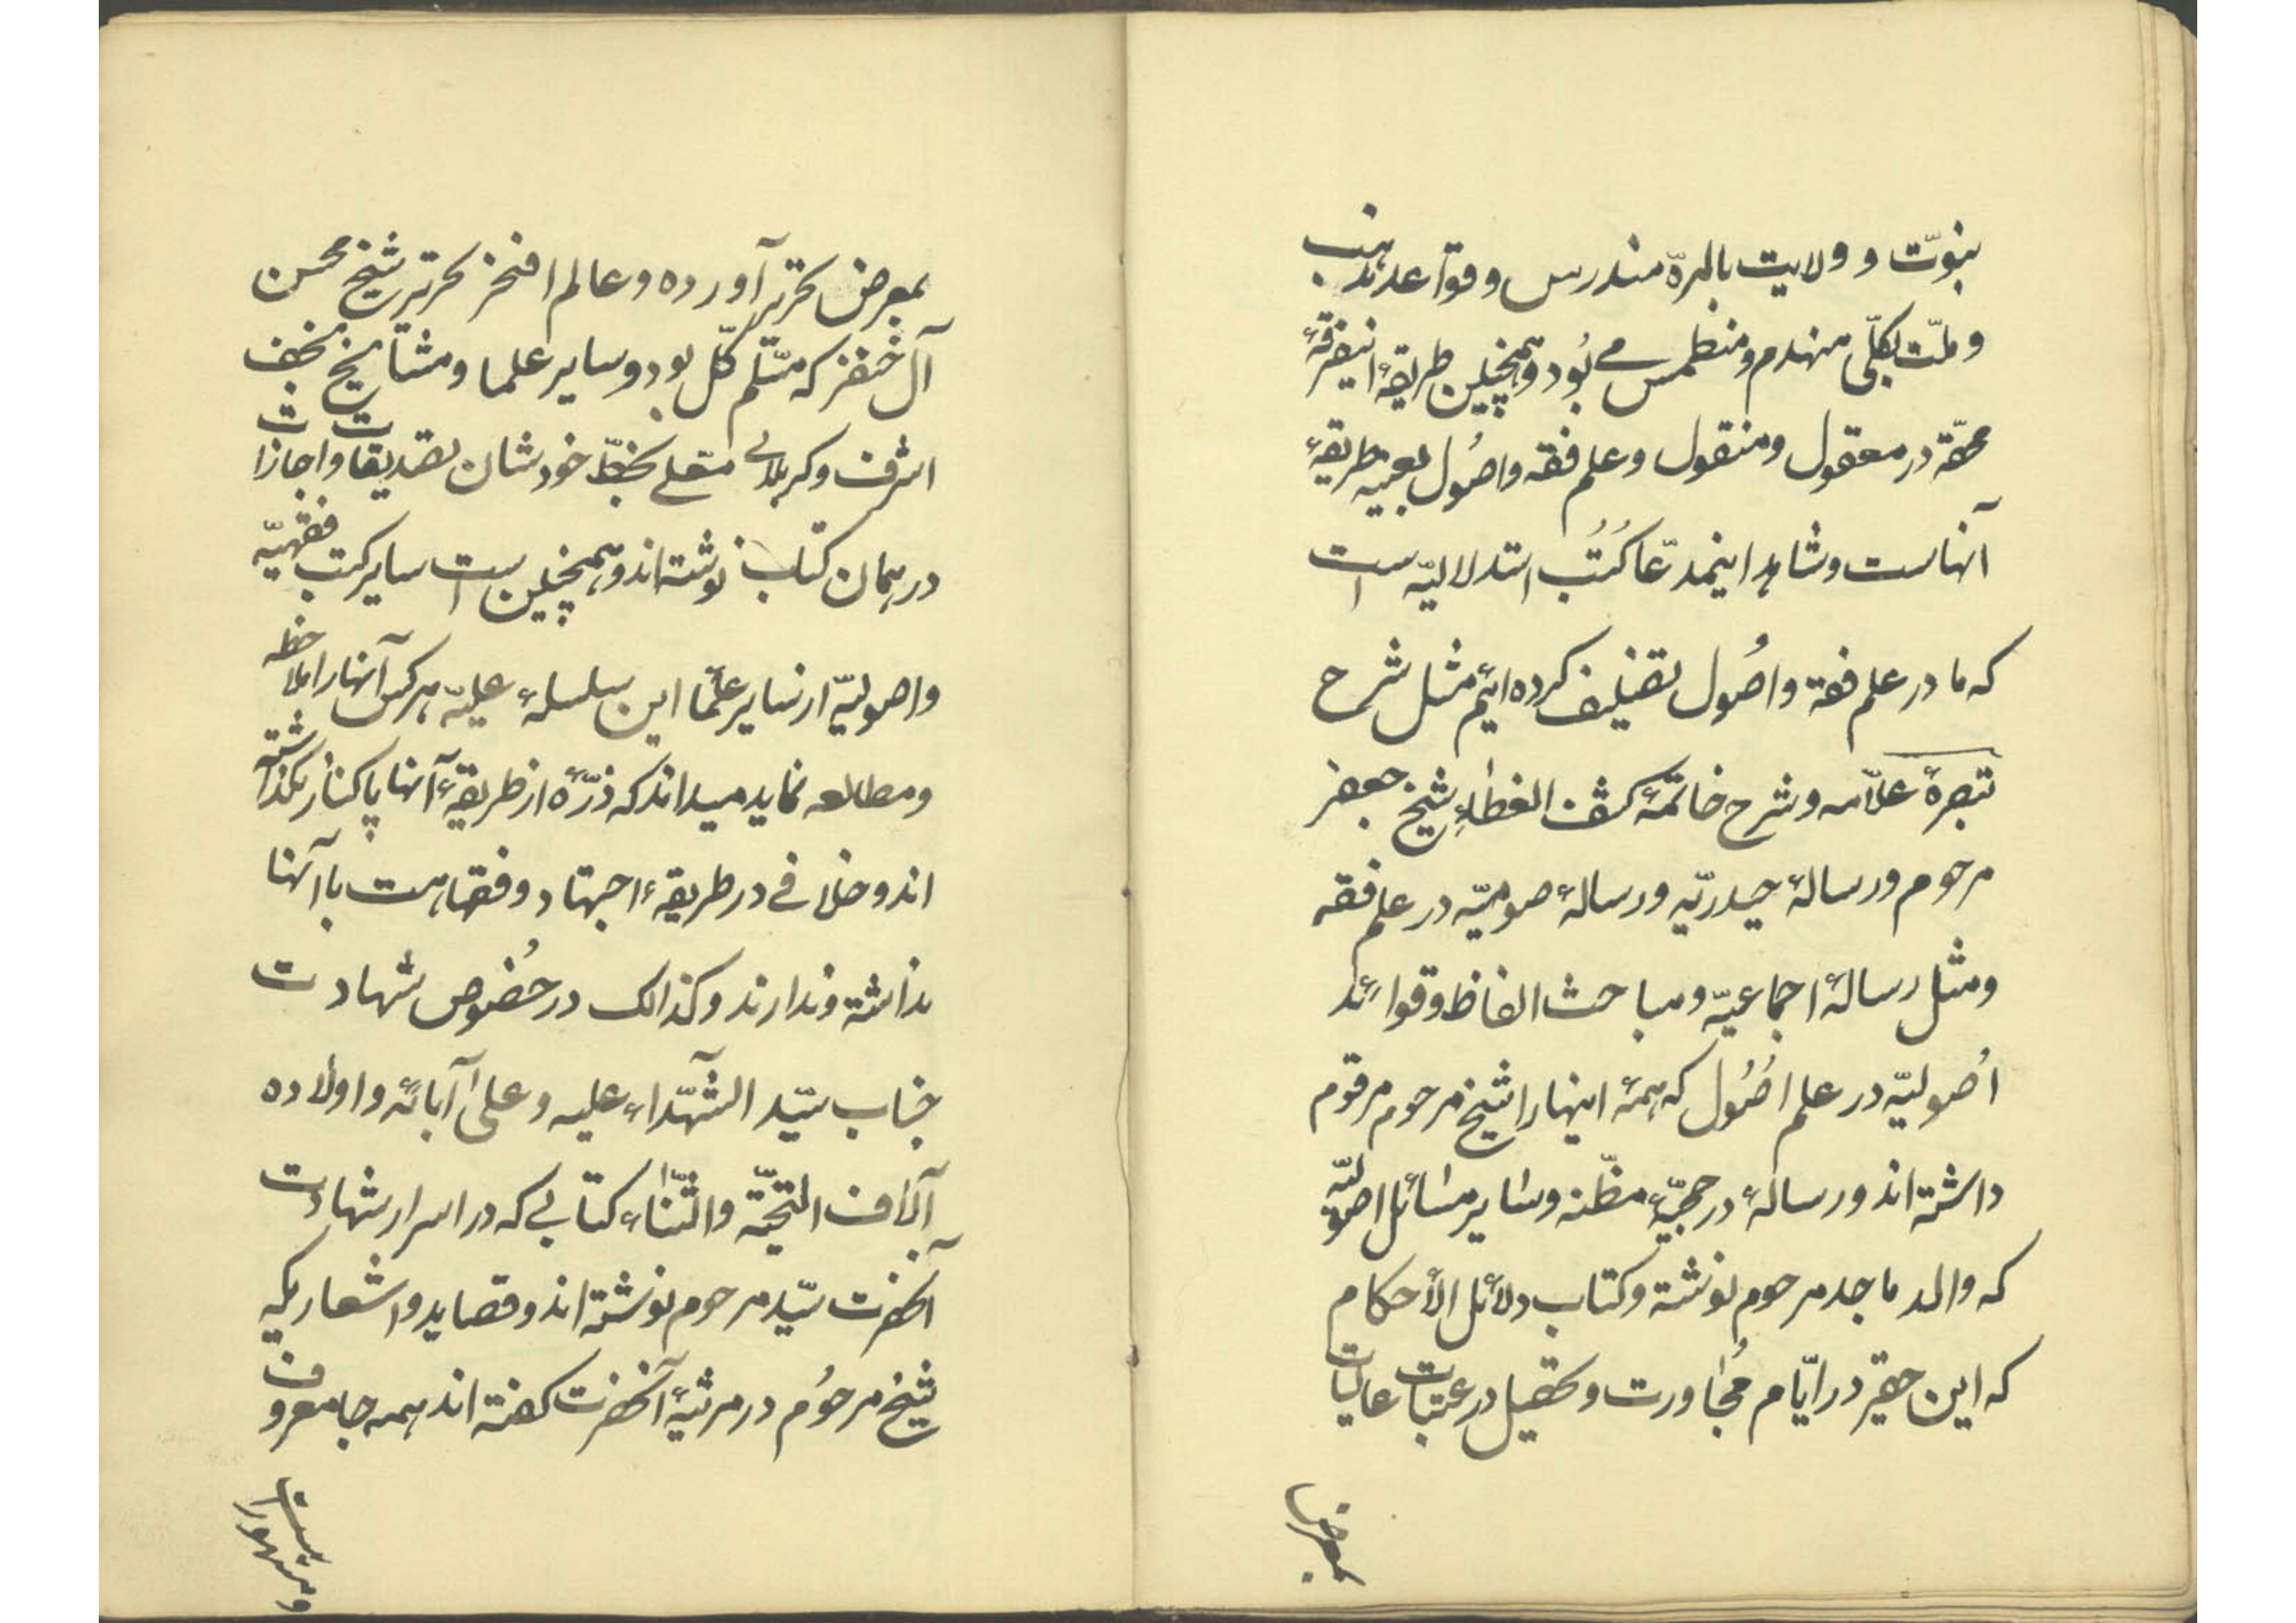 نبوّت و ولایت بالمرّه مندرس و قواعد مذهب
و ملّت بکلّی منهدم و منطمس می بُود و همچنین طریقهٔ اینفرقهٔ
محقّه در معقول و منقول و علم فقه و اصُول بعینه طریقهٔ
آنهاست و شاهد اینمدّعا کُتُب استدلالیّه است
که ما در علم فقه و اصُول تصنیف کرده ایم مثل شرح
تبصرهٔ علّامه و شرح خاتمهٔ کشف الغطاءِ شیخ جعفر
مرحوم و رسالهٔ حیدریّه و رسالهٔ صومیّه در علم فقه
و مثل رسالهٔ اجماعیّه و مباحث الفاظ و قوائد
اُصولیّه در علم اُصُول که همهٔ اینها را شیخ مرحوم مرقوم
داشته اند و رسالهٔ در حجیّهٔ مظنّه و سایر مسائل اصولیّه
که والد ماجد مرحوم نوشته و کتاب دلائل الأحکام
که این حقیر در ایّام مُجاورت و تحصیل در عتبات عالیات
بمعرض
بمعرض تحریر آورده و عالم افخر تحریر شیخ محسن
آل خنفر که مسّلم کلّ بود و سایر علما و مشایخ نجف
اشرف و کربلای معلی بخطّ خودشان تصدیقات و اجازات
در همان کتاب نوشته اند و همچنین است سایر کتب فقهیّه
و اصولیّه از سایر علما این سلسلهٔ علیّه هر کس آنها را ملاحظه
و مطالعه نماید میداند که ذرّهٔ از طریقهٔ آنها پا کنار نگذاشته
اند و خلافی در طریقهٔ اجتهاد و فقاهت با آنها
نداشته و ندارند و کذالک در خصُوص شهادت
جناب سیّد الشّهداء علیه و علیٰ آبائه و اولاده
آلاف التحیّة و الثّناء کتابی که در اسرار شهادت
آنحضرت سیّد مرحوم نوشته اند و قصاید و اشعاریکه
شیخ مرحُوم در مرثیهٔ آنحضرت گفته اند همه جا معروف
و مشهور است